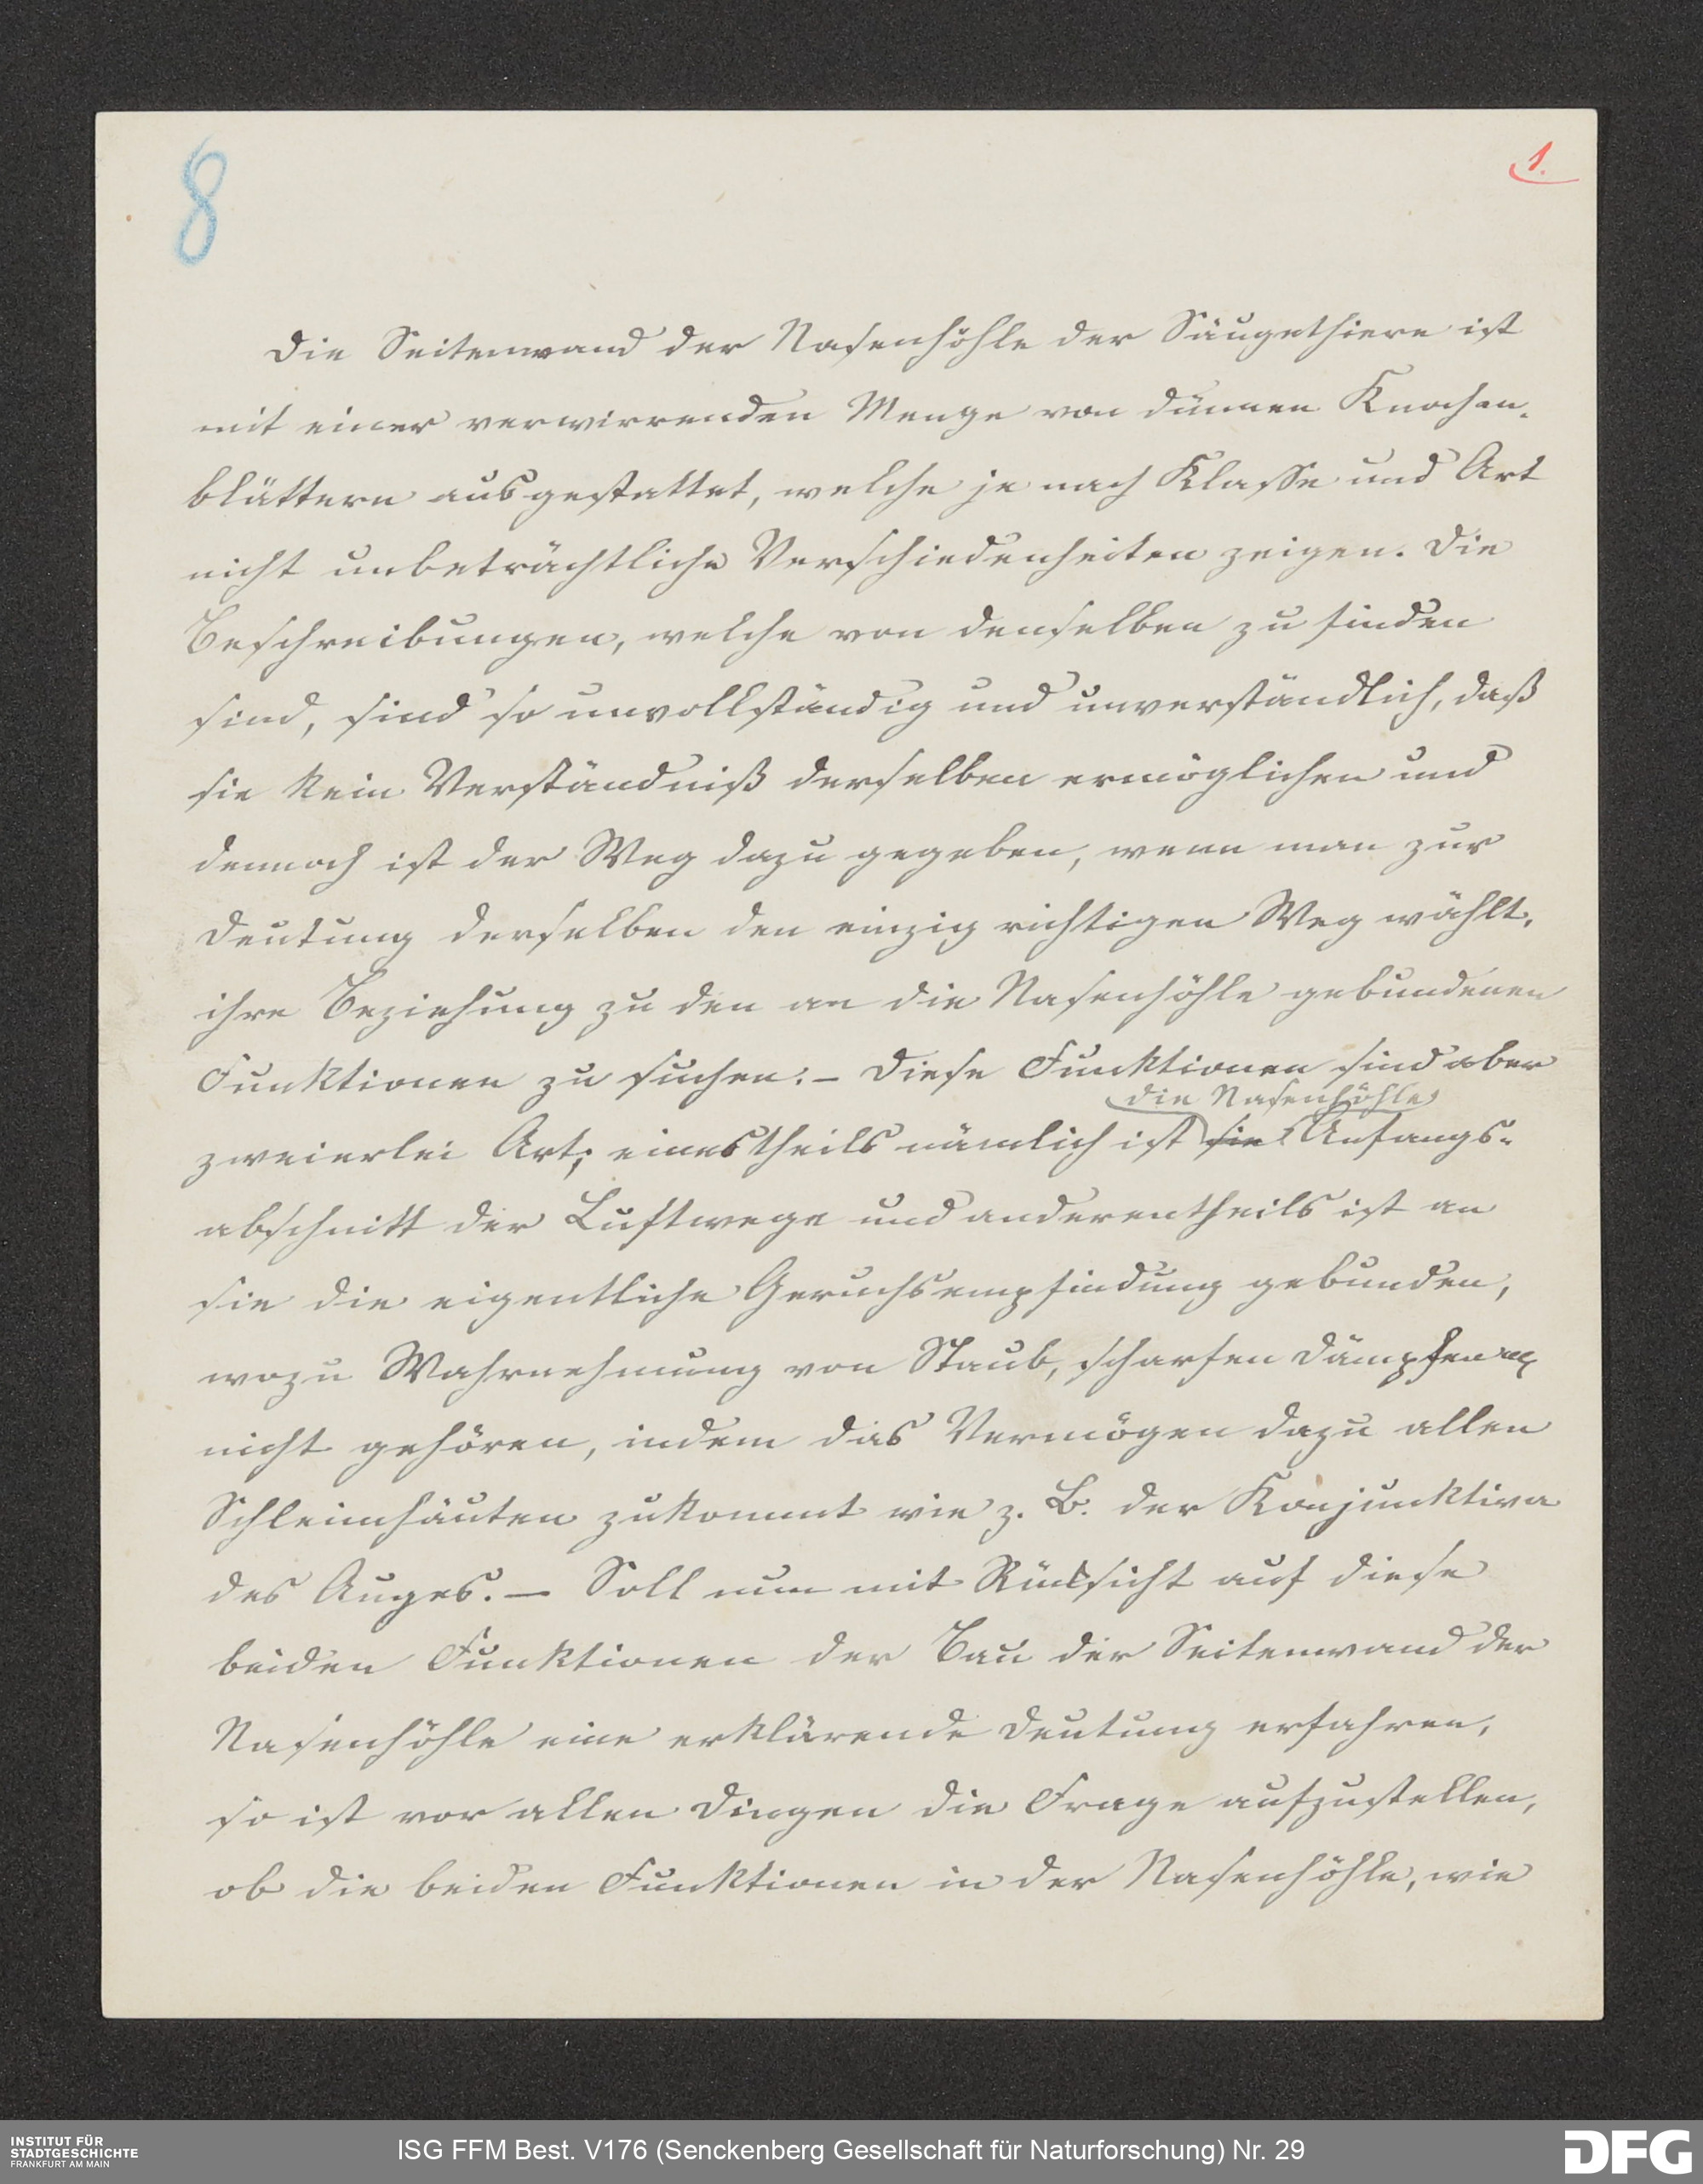 8
1.
Die Seitenwand der Nasenhöhle der Säugethiere ist
mit einer verwirrenden Menge von dünnen Knochen-
blättern ausgestattet, welche je nach Klasse und Art
nicht unbeträchtliche Verschiedenheiten zeigen. Die
Beschreibungen, welche von denselben zu finden
sind, sind so unvollständig und unverständlich, daß
sie kein Verständniß derselben ermöglichen und
dennoch ist der Weg dazu gegeben, wenn man zur
Deutung derselben den einzig richtigen Weg wählt,
ihre Beziehung zu den an die Nasenhöhle gebundenen
Funktionen zu suchen. – Diese Funktionen sind aber
die Nasenhöhle
zweierlei Art; einestheils nämlich ist sie Anfangs-
abschnitt der Luftwege und anderentheils ist an
sie die eigentliche Geruchsempfindung gebunden,
wozu Wahrnehmung von Staub, scharfen Dämpfen
nicht gehören, indem das Vermögen dazu allen
Schleimhäuten zukommt wie z. B. der Konjunktiva
des Auges. – Soll nun mit Rücksicht auf diese
beiden Funktionen der Bau der Seitenwand der
Nasenhöhle eine erklärende Deutung erfahren,
so ist vor allen Dingen die Frage aufzustellen,
ob die beiden Funktionen in der Nasenhöhle, wie
INSTITUT FÜR
STADTGESCHICHTE
FRANKFURT AM MAIN
ISG FFM Best. V176 (Senckenberg Gesellschaft für Naturforschung) Nr. 29
DFG